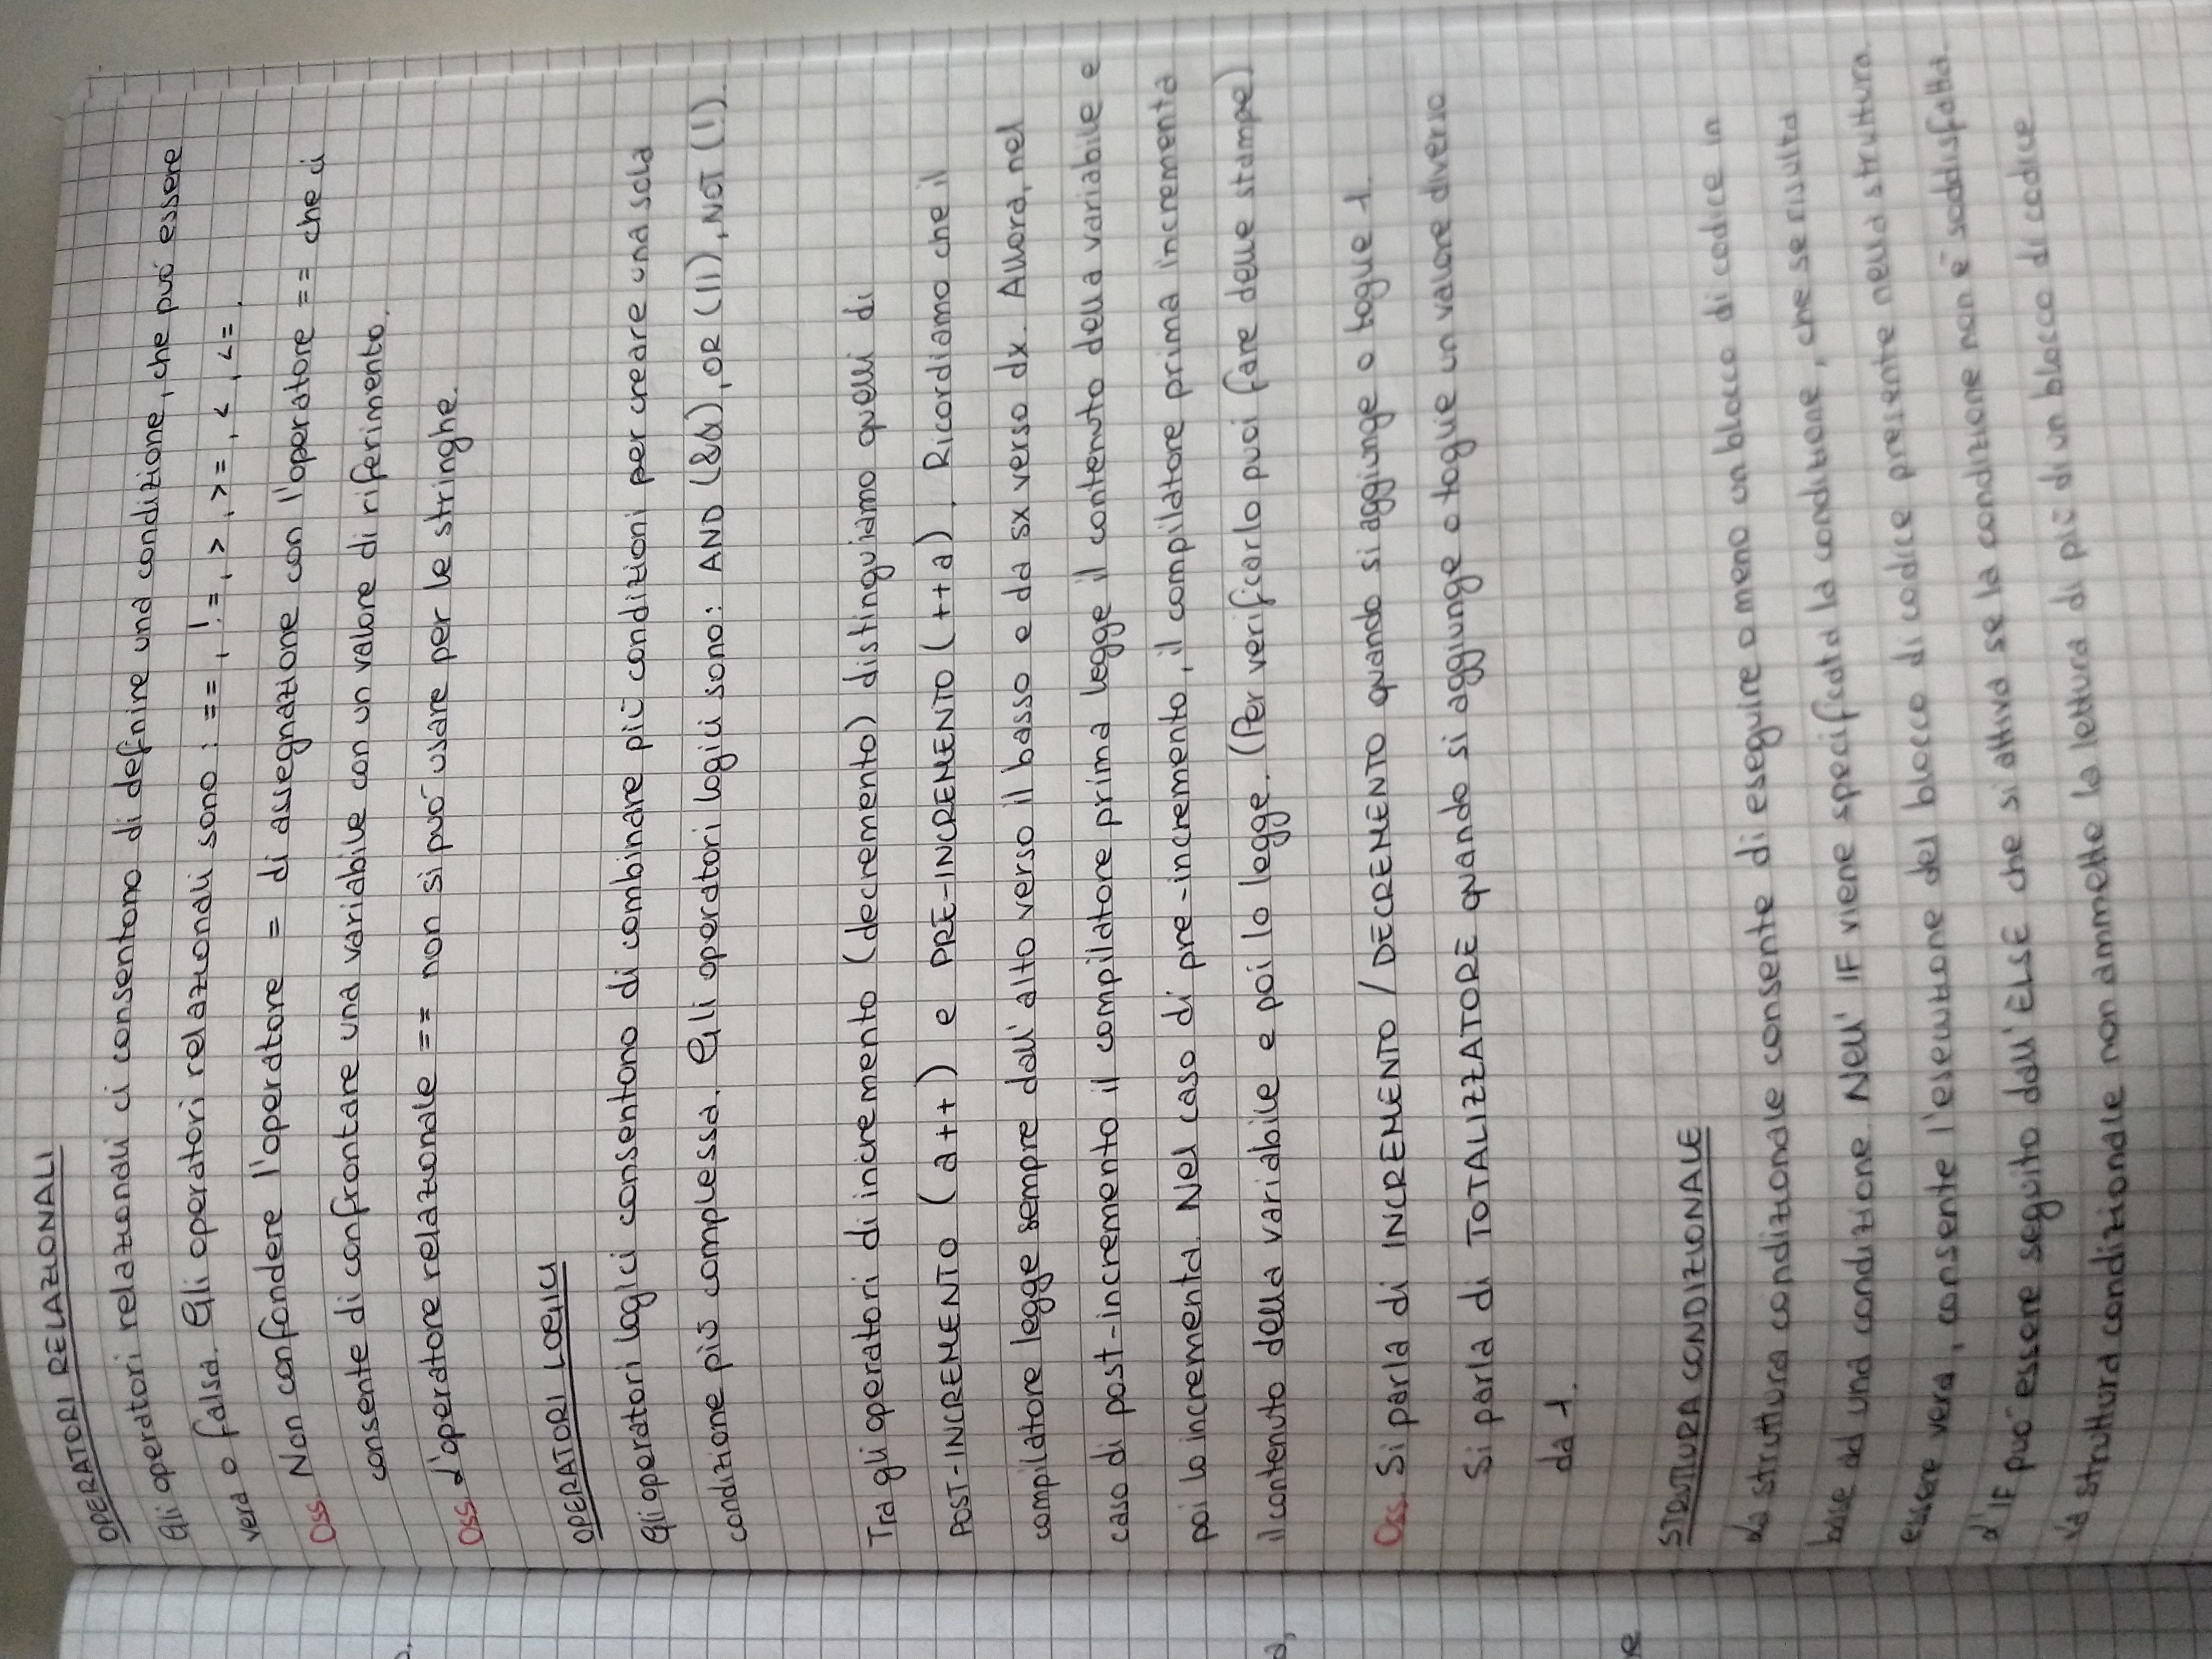 OPERATORI RELAZIONALI
Gli operatori relazionali ci consentono di definire una condizione, che può essere
vera o falsa. Gli operatori relazionali sono: ==, !=, >, >=, <, <=.
Oss. Non confondere l'operatore = di assegnazione con l'operatore == che ci
consente di confrontare una variabile con un valore di riferimento.
Oss. L'operatore relazionale == non si può usare per le stringhe.
OPERATORI LOGICI
Gli operatori logici consentono di combinare più condizioni per creare una sola
condizione più complessa. Gli operatori logici sono: AND (&&), OR (||), NOT (!).
Tra gli operatori di incremento (decremento) distinguiamo quelli di
POST-INCREMENTO (a++) e PRE-INCREMENTO (++a). Ricordiamo che il
compilatore legge sempre dall'alto verso il basso e da sx verso dx. Allora, nel
caso di post-incremento il compilatore prima legge il contenuto della variabile e
poi lo incrementa. Nel caso di pre-incremento, il compilatore prima incrementa
il contenuto della variabile e poi lo legge. (Per verificarlo puoi fare delle stampe)
Oss. Si parla di INCREMENTO / DECREMENTO quando si aggiunge o toglie 1.
Si parla di TOTALIZZATORE quando si aggiunge o toglie un valore diverso
da 1.
STRUTTURA CONDIZIONALE
La struttura condizionale consente di eseguire o meno un blocco di codice in
base ad una condizione. Nell' IF viene specificata la condizione, che se risulta
essere vera, consente l'esecuzione del blocco di codice presente nella struttura.
L'IF può essere seguito dall'ELSE che si attiva se la condizione non è soddisfatta.
La struttura condizionale non ammette la lettura di più di un blocco di codice.